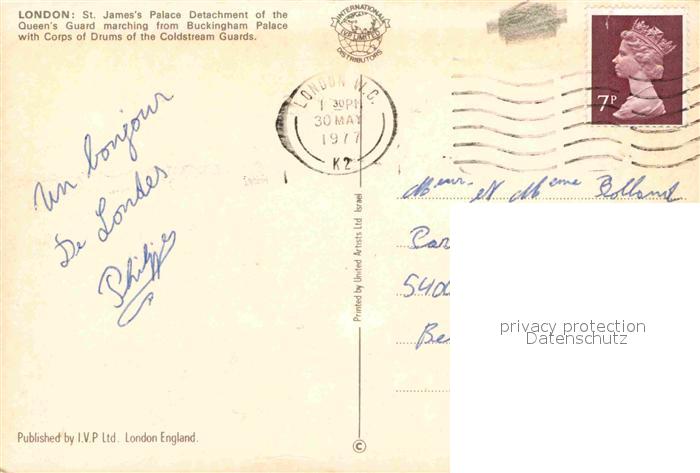 LONDON: St. James's Palace Detachment of the
Queen's Guard marching from Buckingham Palace
with Corps of Drums of the Coldstream Guards.
INTERNATIONAL
I.V.P LIMITED
DISTRIBUTORS
LONDON W.C.
1 30PM
30 MAY
1977
K2
7P
Un bonjour
De Londes
Philippe
Meur. et Meme Rolland
540
Be
Printed by United Artists Ltd Israel
©
privacy protection
Datenschutz
Published by I.V.P Ltd. London England.